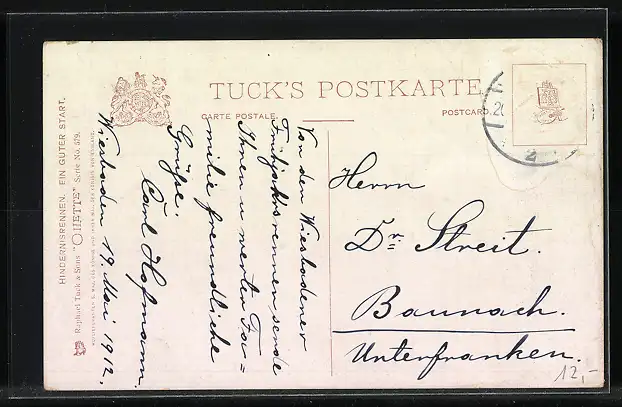 TUCK'S POSTKARTE.
CARTE POSTALE.
POSTCARD.
HINDERNISRENNEN. EIN GUTER START.
Raphael Tuck & Sons "OILETTE" Serie No. 579.
Von den Wiesbadener
Frühjahrsrennen sende
Ihnen u werten Fa=
milie freundliche
Grüße.
Carl Hofmann.
Wiesbaden 19. Mai 1912.
Herrn
Dr. Streit.
Baunach.
Unterfranken.
12,-
2